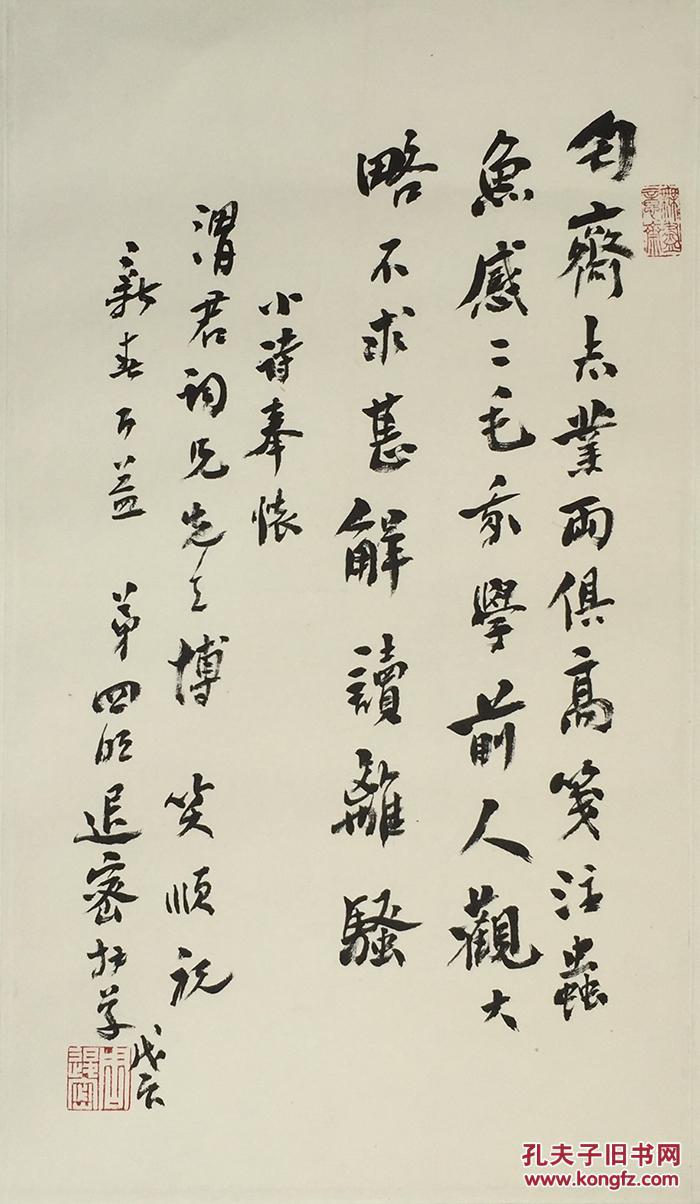 齋志業兩俱高箋注蟲
魚感二毛我學前人觀大
略不求甚解讀離騷
小詩奉懷
渭君詞兄先生博 笑順祝
新春百益 弟四明退密拜草
戊辰
孔夫子旧书网
www.kongfz.com